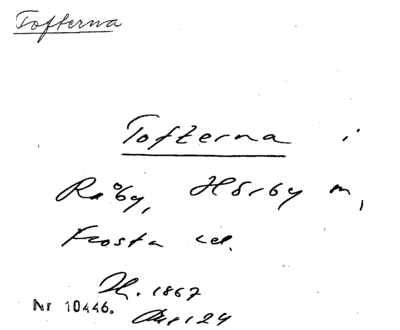 Tofterna
Tofterna i
Råby, Hörby m,
Frosta hd.
1867
Nr 10446.